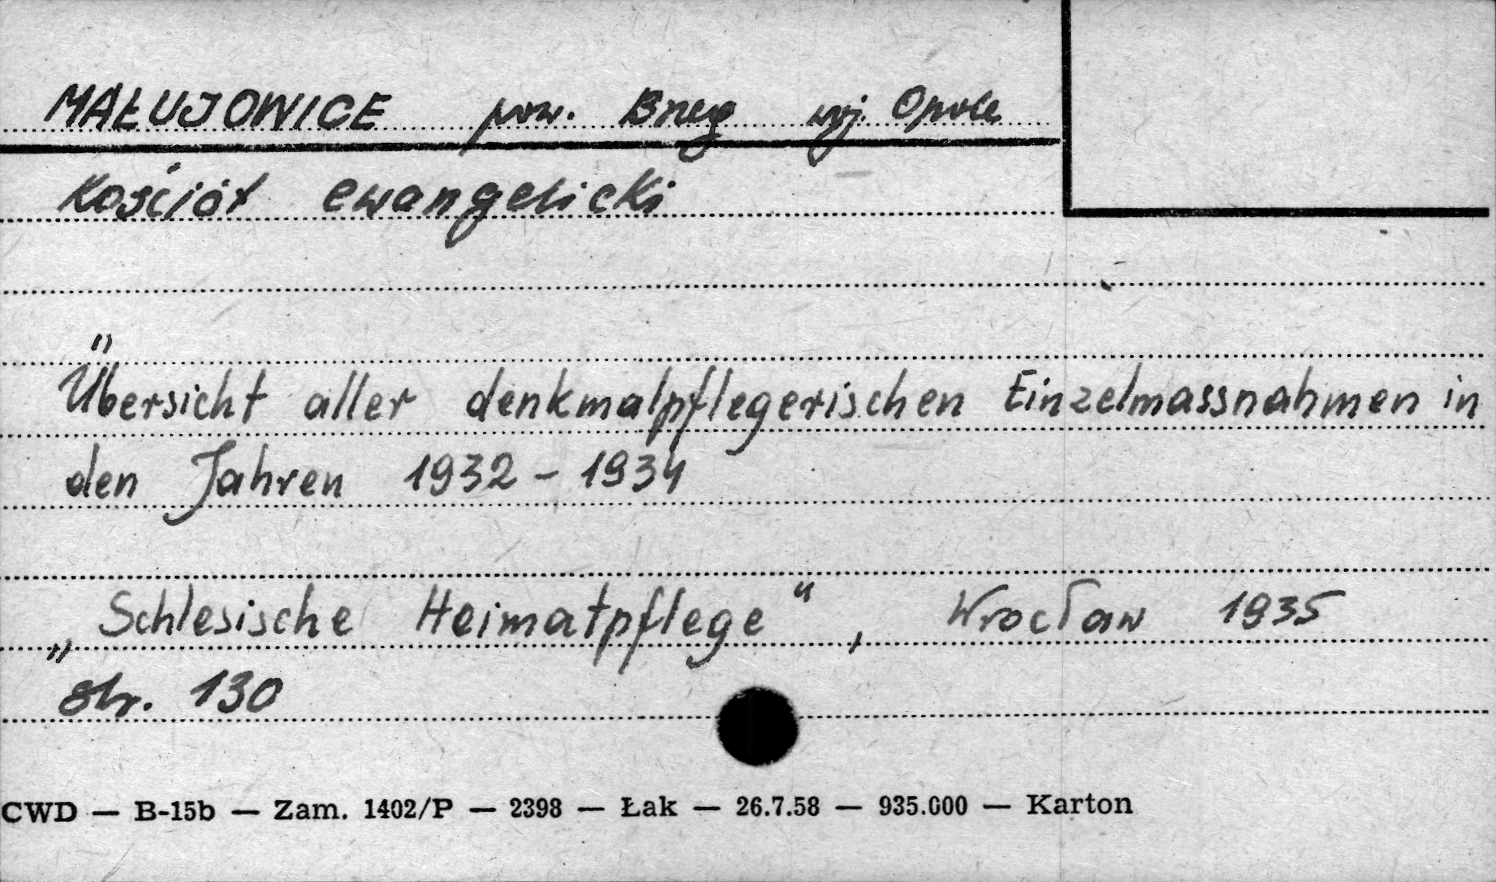 MAŁUJOWICE pow. Brzeg woj. Opole
Kościół ewangelicki
Übersicht aller denkmalpflegerischen Einzelmassnahmen in
den Jahren 1932 - 1934
„Schlesische Heimatpflege“, Wrocław 1935
str. 130
CWD — B-15b — Zam. 1402/P — 2398 — Łak — 26.7.58 — 935.000 — Karton